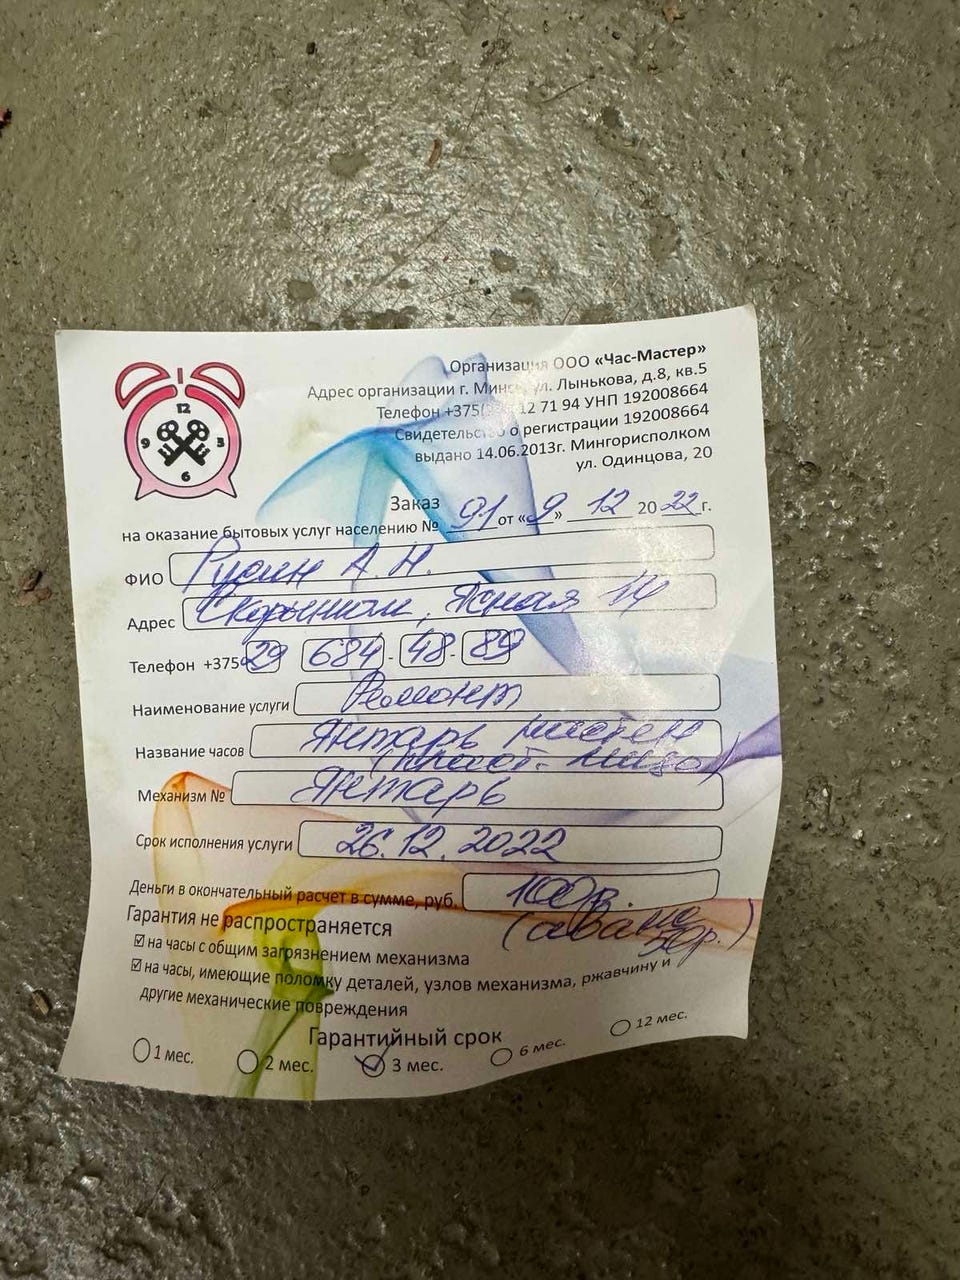 Организация ООО «Час-Мастер»
Адрес организации г. Минск, ул. Лынькова, д.8, кв.5
Телефон +375( 12 71 94 УНП 192008664
Свидетельство о регистрации 192008664
выдано 14.06.2013г. Мингорисполком
ул. Одинцова, 20
12
9 3
6
Заказ
на оказание бытовых услуг населению № 91 от «9» 12 2022 г.
ФИО Русин А. Н.
Адрес Ясная 14
Телефон +375 29 684 - 48 - 89
Наименование услуги Ремонт
Название часов Янтарь
Механизм № Янтарь
Срок исполнения услуги 26.12.2022
Деньги в окончательный расчет в сумме, руб. 100р.
(аванс
50р.)
Гарантия не распространяется
на часы с общим загрязнением механизма
на часы, имеющие поломку деталей, узлов механизма, ржавчину и
другие механические повреждения
Гарантийный срок
1 мес. 2 мес. 3 мес. 6 мес. 12 мес.